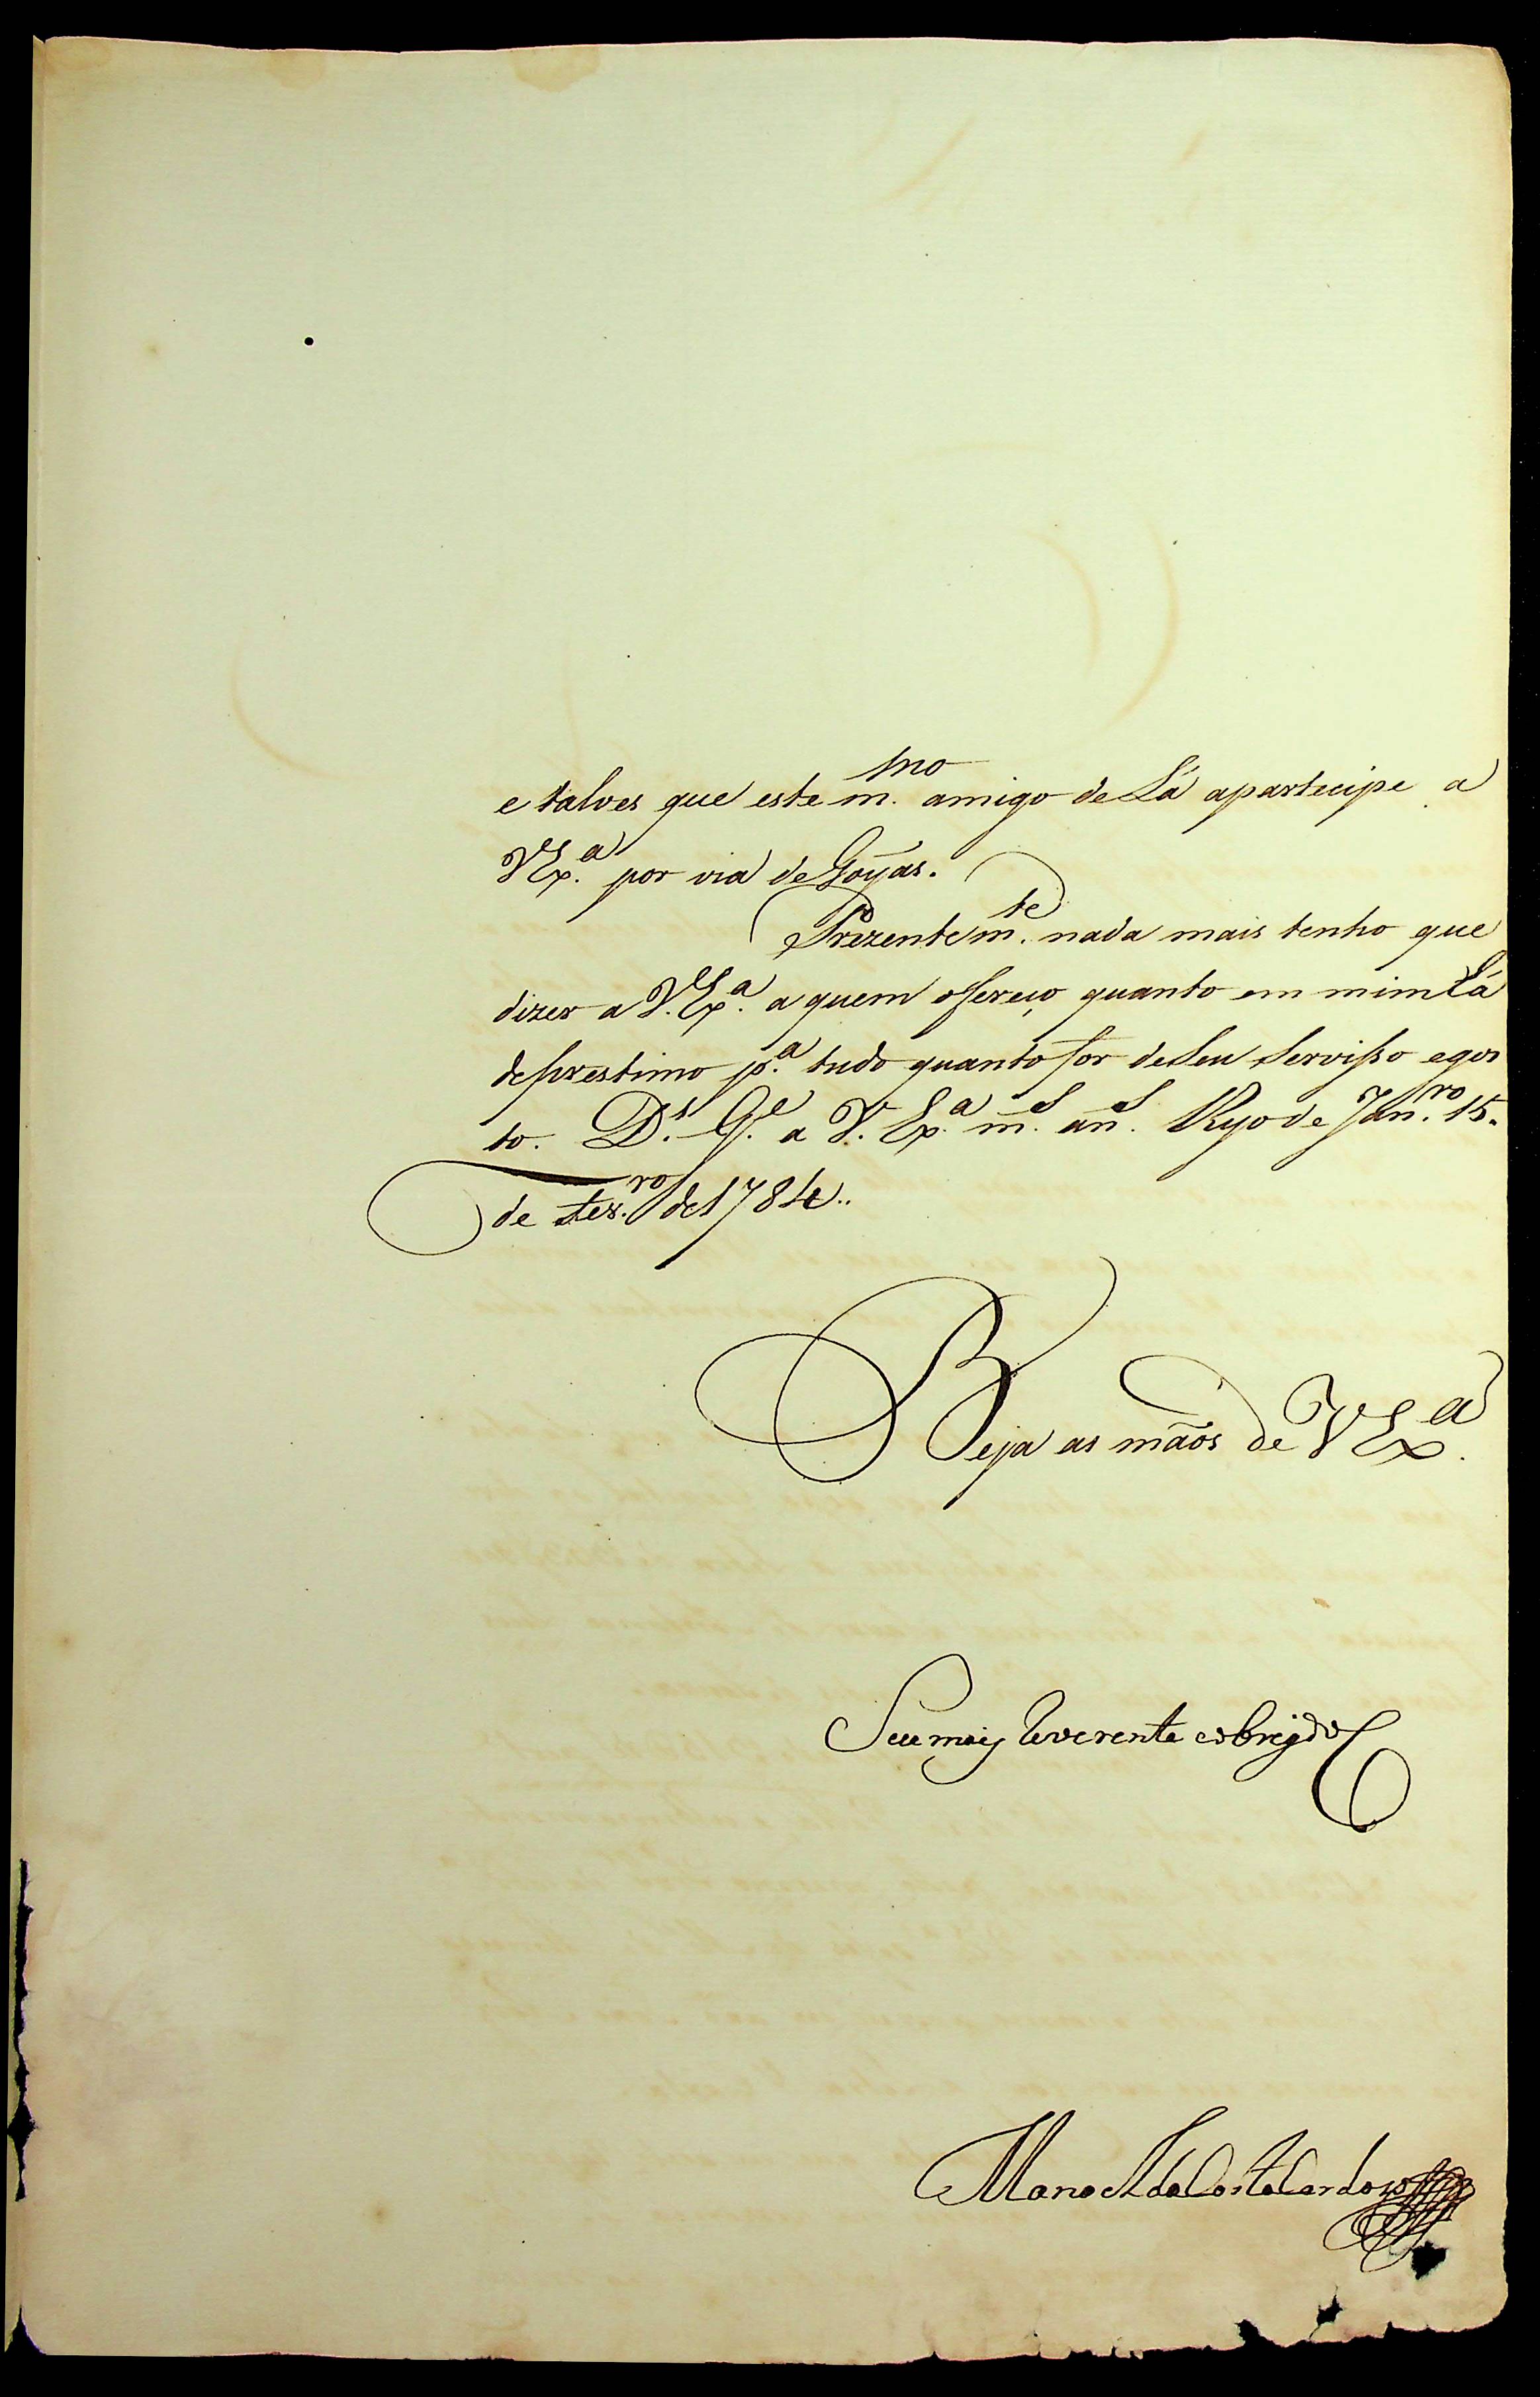 e talves que este m.mo amigo de Lá aparteçipe a
VEx.a por via de Goyas.
Prezentem.te nada mais tenho que
dizer a V.Ex.a a quem offereço quanto em mim há
de prestimo p.a tudo quanto for de Seu Servisso e gos
to. D.s G.e a V. Ex.a m.s an.s Ryo de Jan.ro 15.
de Fev.ro de 1784..
Beja as mãos de VEx.a
Seu mais Reverente e obrigdo C
Manoel da Costa Cardozo